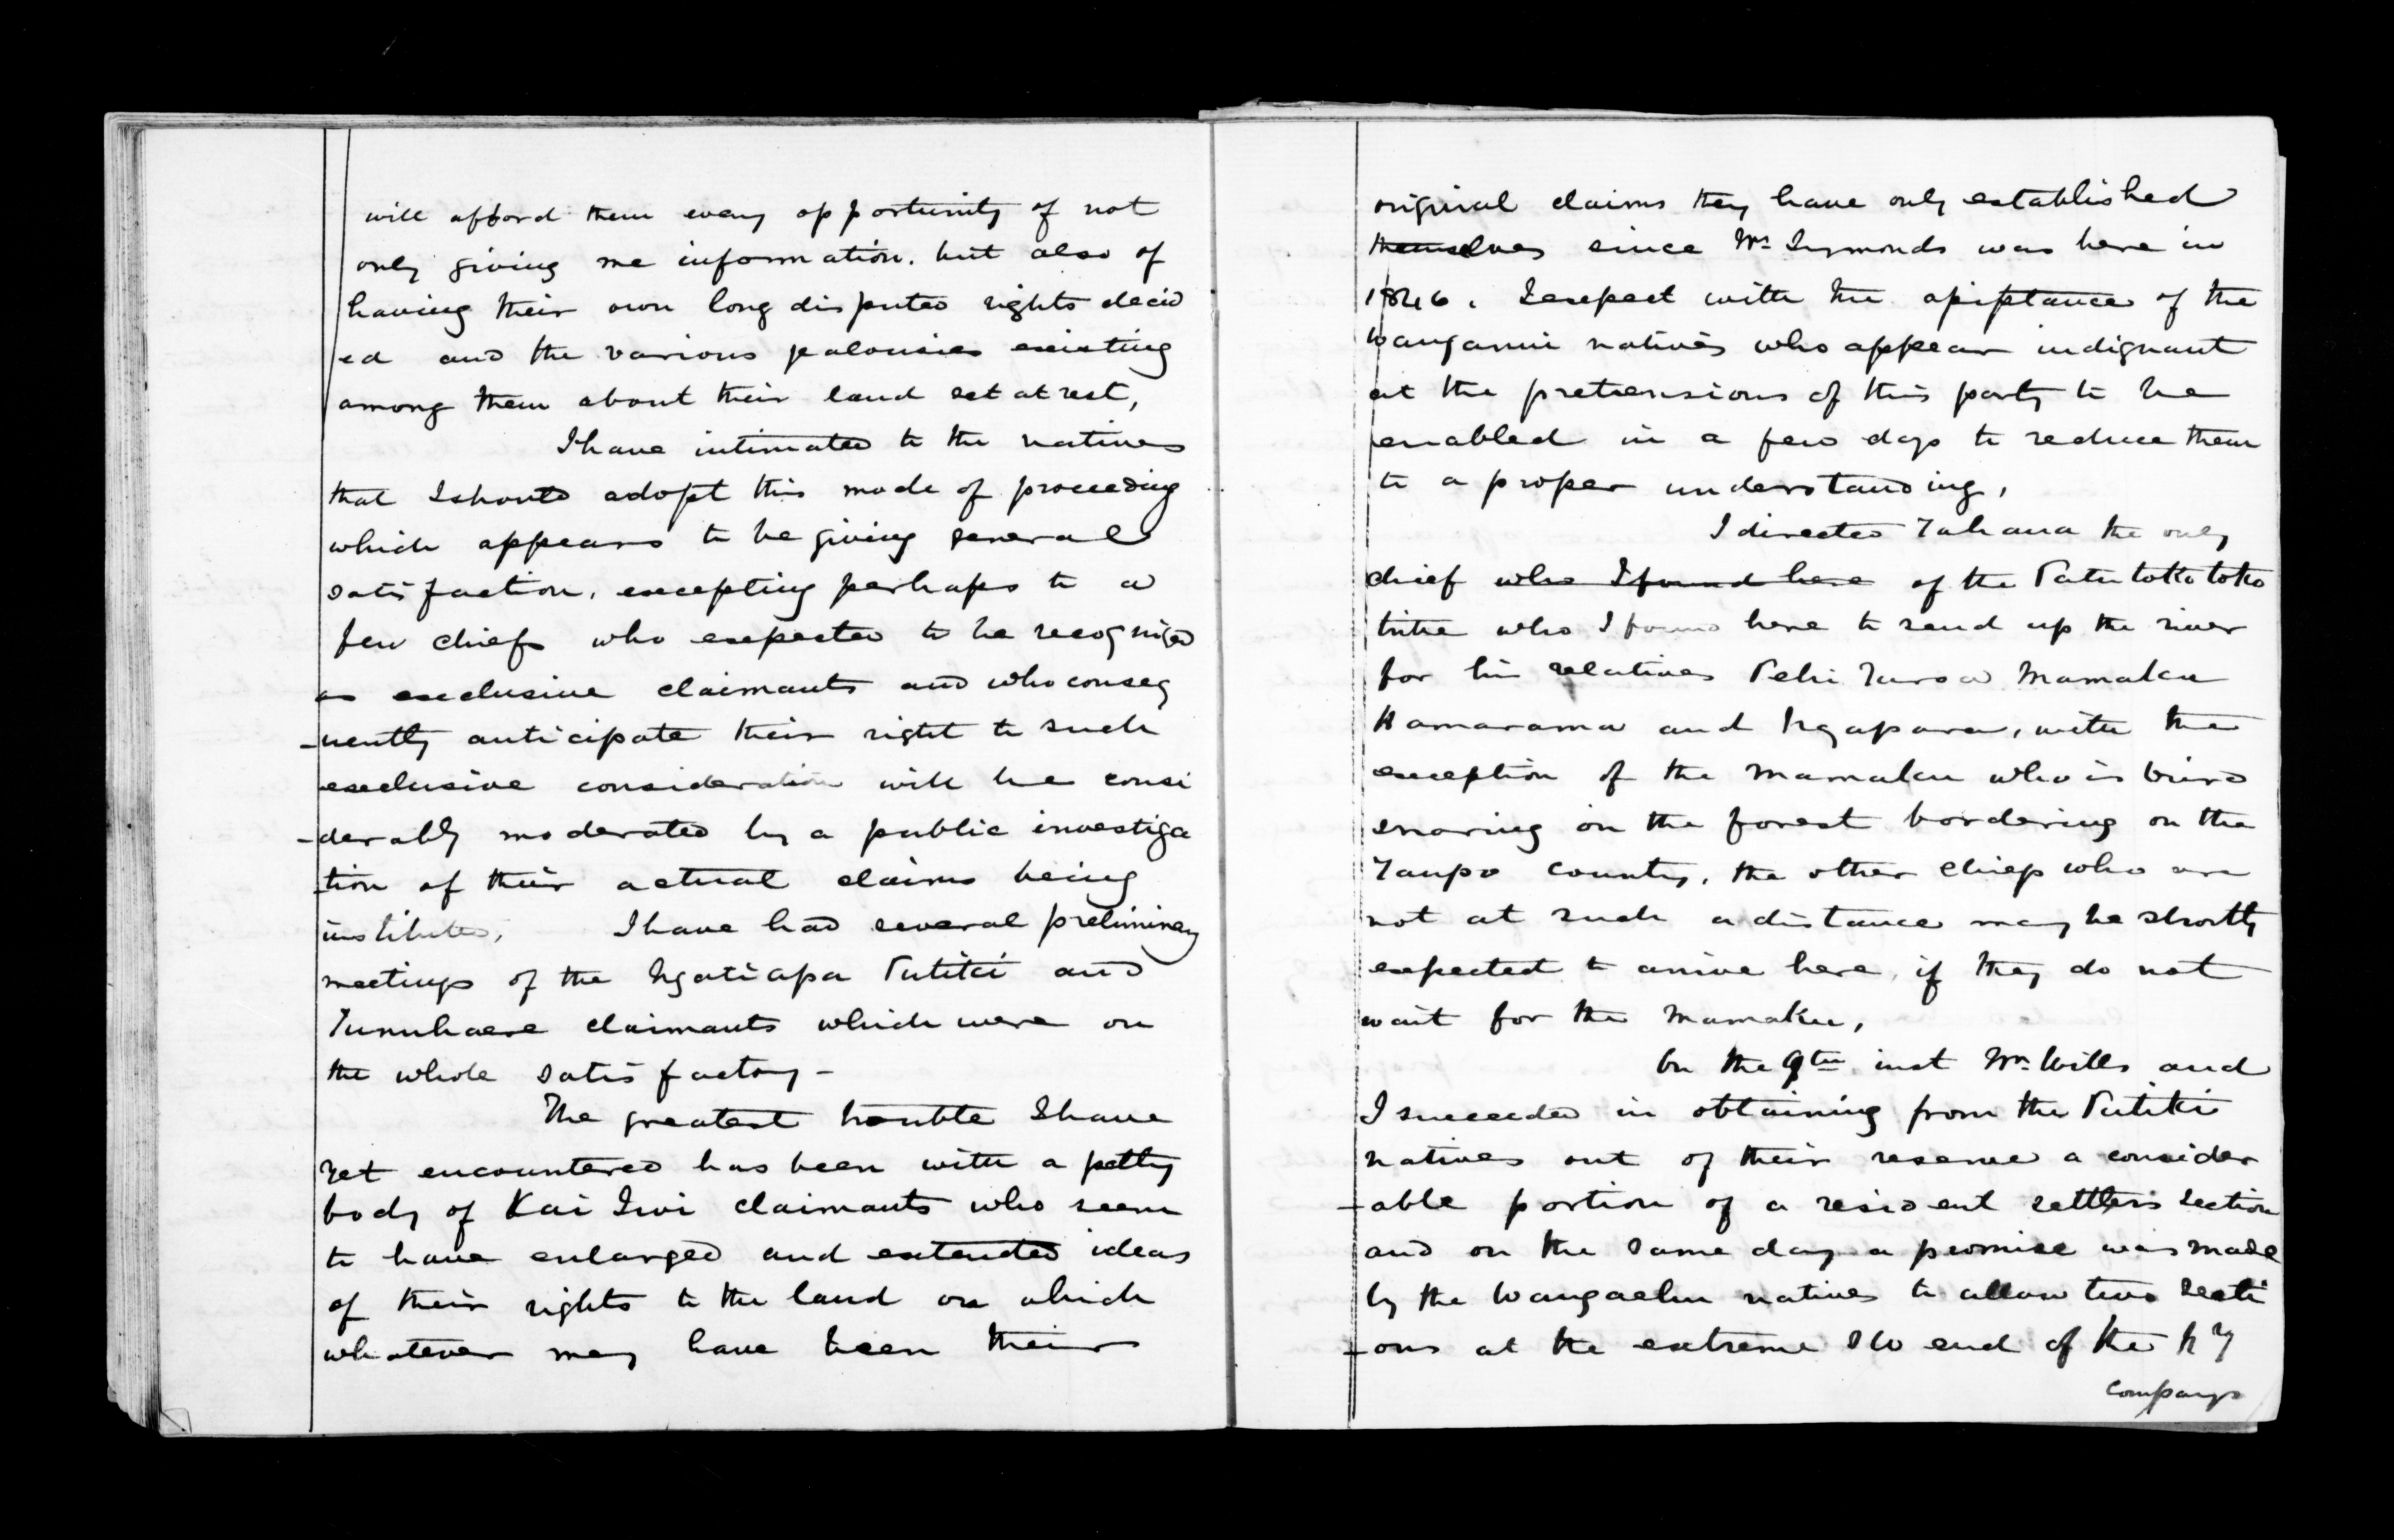 will afford them every opportunity of not
only giving me information. but also of
having their own long disputed rights decid
ed and the various jealousies existing
among them about their land set at rest,
I have intimated to the natives
that I should adopt this mode of proceeding
which appears to be giving general
satisfaction, excepting perhaps to a
few chiefs who expected to be recognized
as exclusive claimants and who conseq
-uently anticipate their right to such
exclusive consideration will be consi
-derably moderated by a public investiga
tion of their actual claims being
instituted, I have had several preliminary
meetings of the Ngatiapa Putiki and
Tunuhaere claimants which were on
the whole satisfactory -
The greatest trouble I have
yet encountered has been with a petty
body of Kai Iwi claimants who seem
to have enlarged and extended ideas
of their rights to the land on which
whatever may have been their
original claims they have only established
themselves since Mr Symonds was here in
1846. I expect with the assistance of the
Wanganui natives who appear indignant
at the pretensions of this party to be
enabled in a few days to reduce them
to a proper understanding,
I directed Tahana the only
chief who I found here of the Patutokotoko
tribe who I found here to send up the river
for his relatives Pehi Turoa Mamaku
Hamarama and Ngapara, with the
exception of the Mamaku who is bird
snaring in the forest bordering on the
Taupo country, the other chiefs who are
not at such a distance may be shortly
expected to arrive here, if they do not
wait for the Mamaku,
On the 9th inst Mr Wills and
I succeeded in obtaining from the Putiki
natives out of their reserve a consider
-able portion of a resident settlers section
and on the same day a promise was made
by the Wangaehu natives to allow two secti
-ons at the extreme SW end of the NZ
Companys